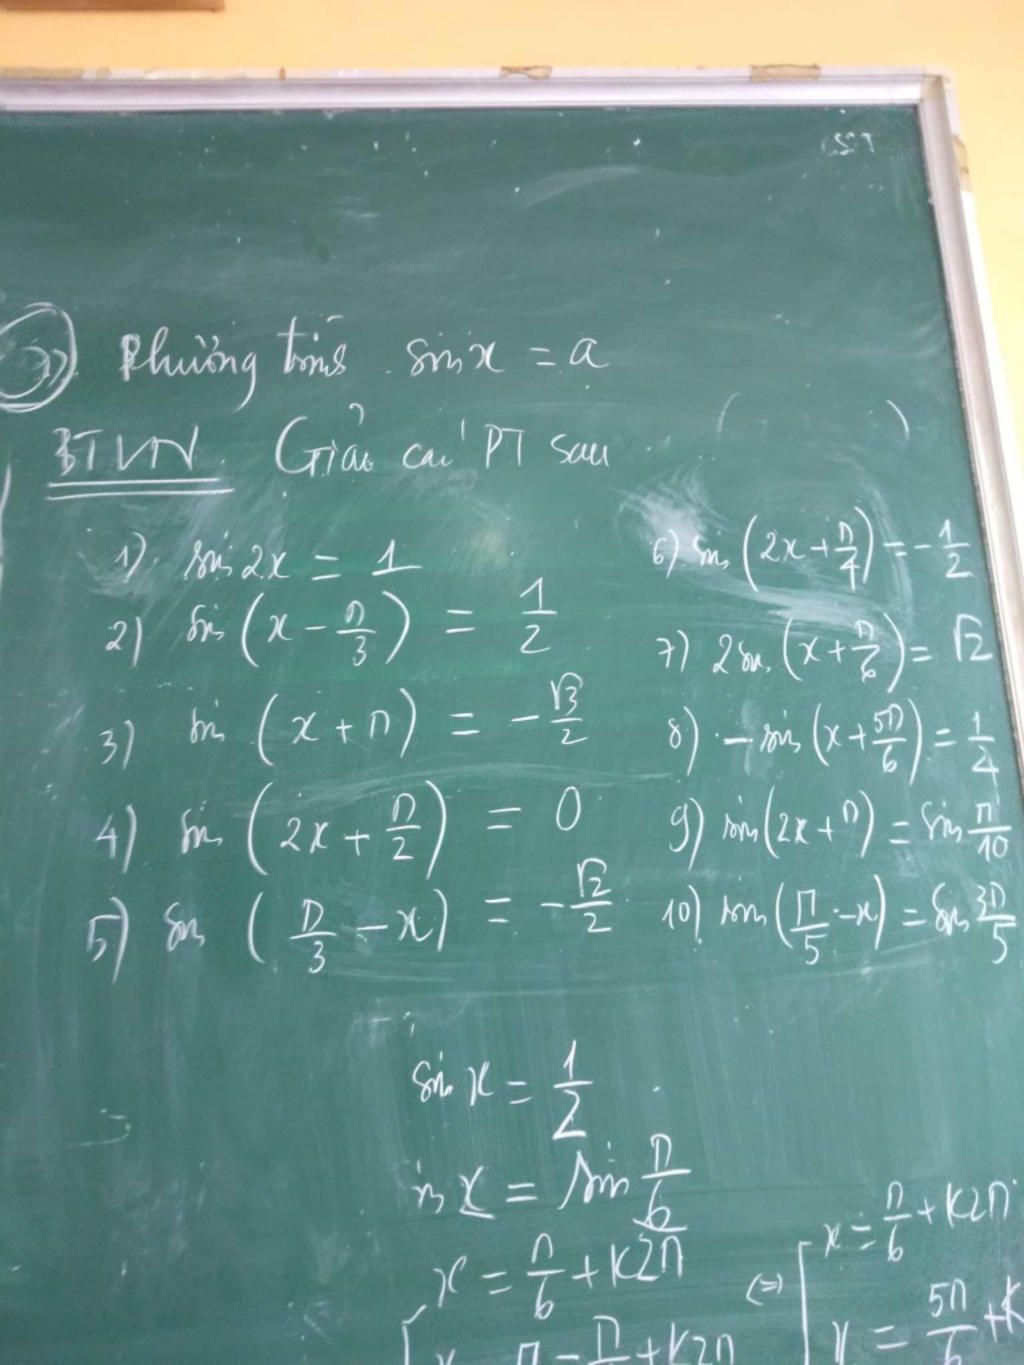 2) Phương trình sin x = a
BTVN Giải các PT sau ( )
1) sin 2x = 1
2) sin (x - π/3) = 1/2
3) sin (x + π) = -√3/2
4) sin (2x + π/2) = 0
5) sin (π/3 - x) = -√2/2
6) sin (2x + π/4) = -1/2
7) 2 sin (x + π/6) = √2
8) - sin (x + 5π/6) = 1/2
9) sin (2x + π) = sin π/10
10) sin (π/5 - x) = sin 3π/5
sin x = 1/2
sin x = sin π/6
x = π/6 + k2π
x = π - π/6 + k2π
⇔ [ x = π/6 + k2π
x = 5π/6 + k